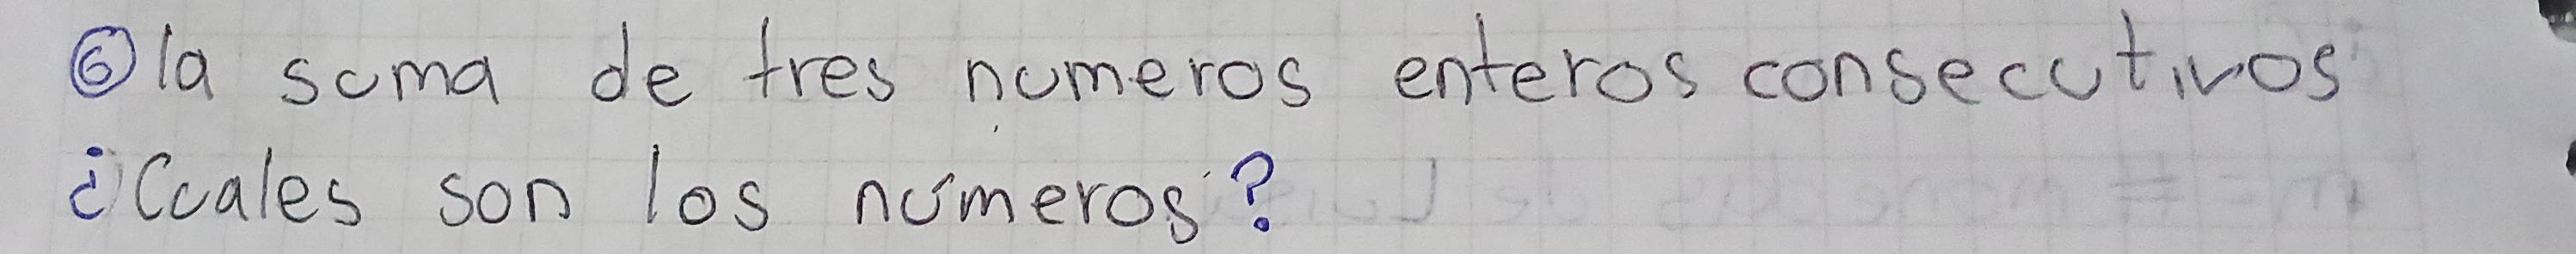 ⑥ la suma de tres numeros enteros consecutivos
¿Cuales son los números?